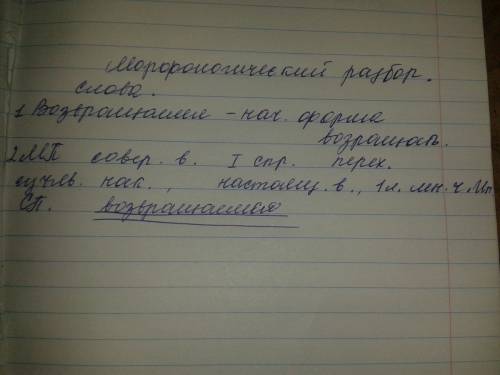 Морфологический разбор.
слова.
1 Возвращаемся - нач. форма
возращать.
2 МП совер. в. I спр. перех.
изъяв. нак., настоящ. в., 1 л. мн. ч. Мы
СП. возвращаемся